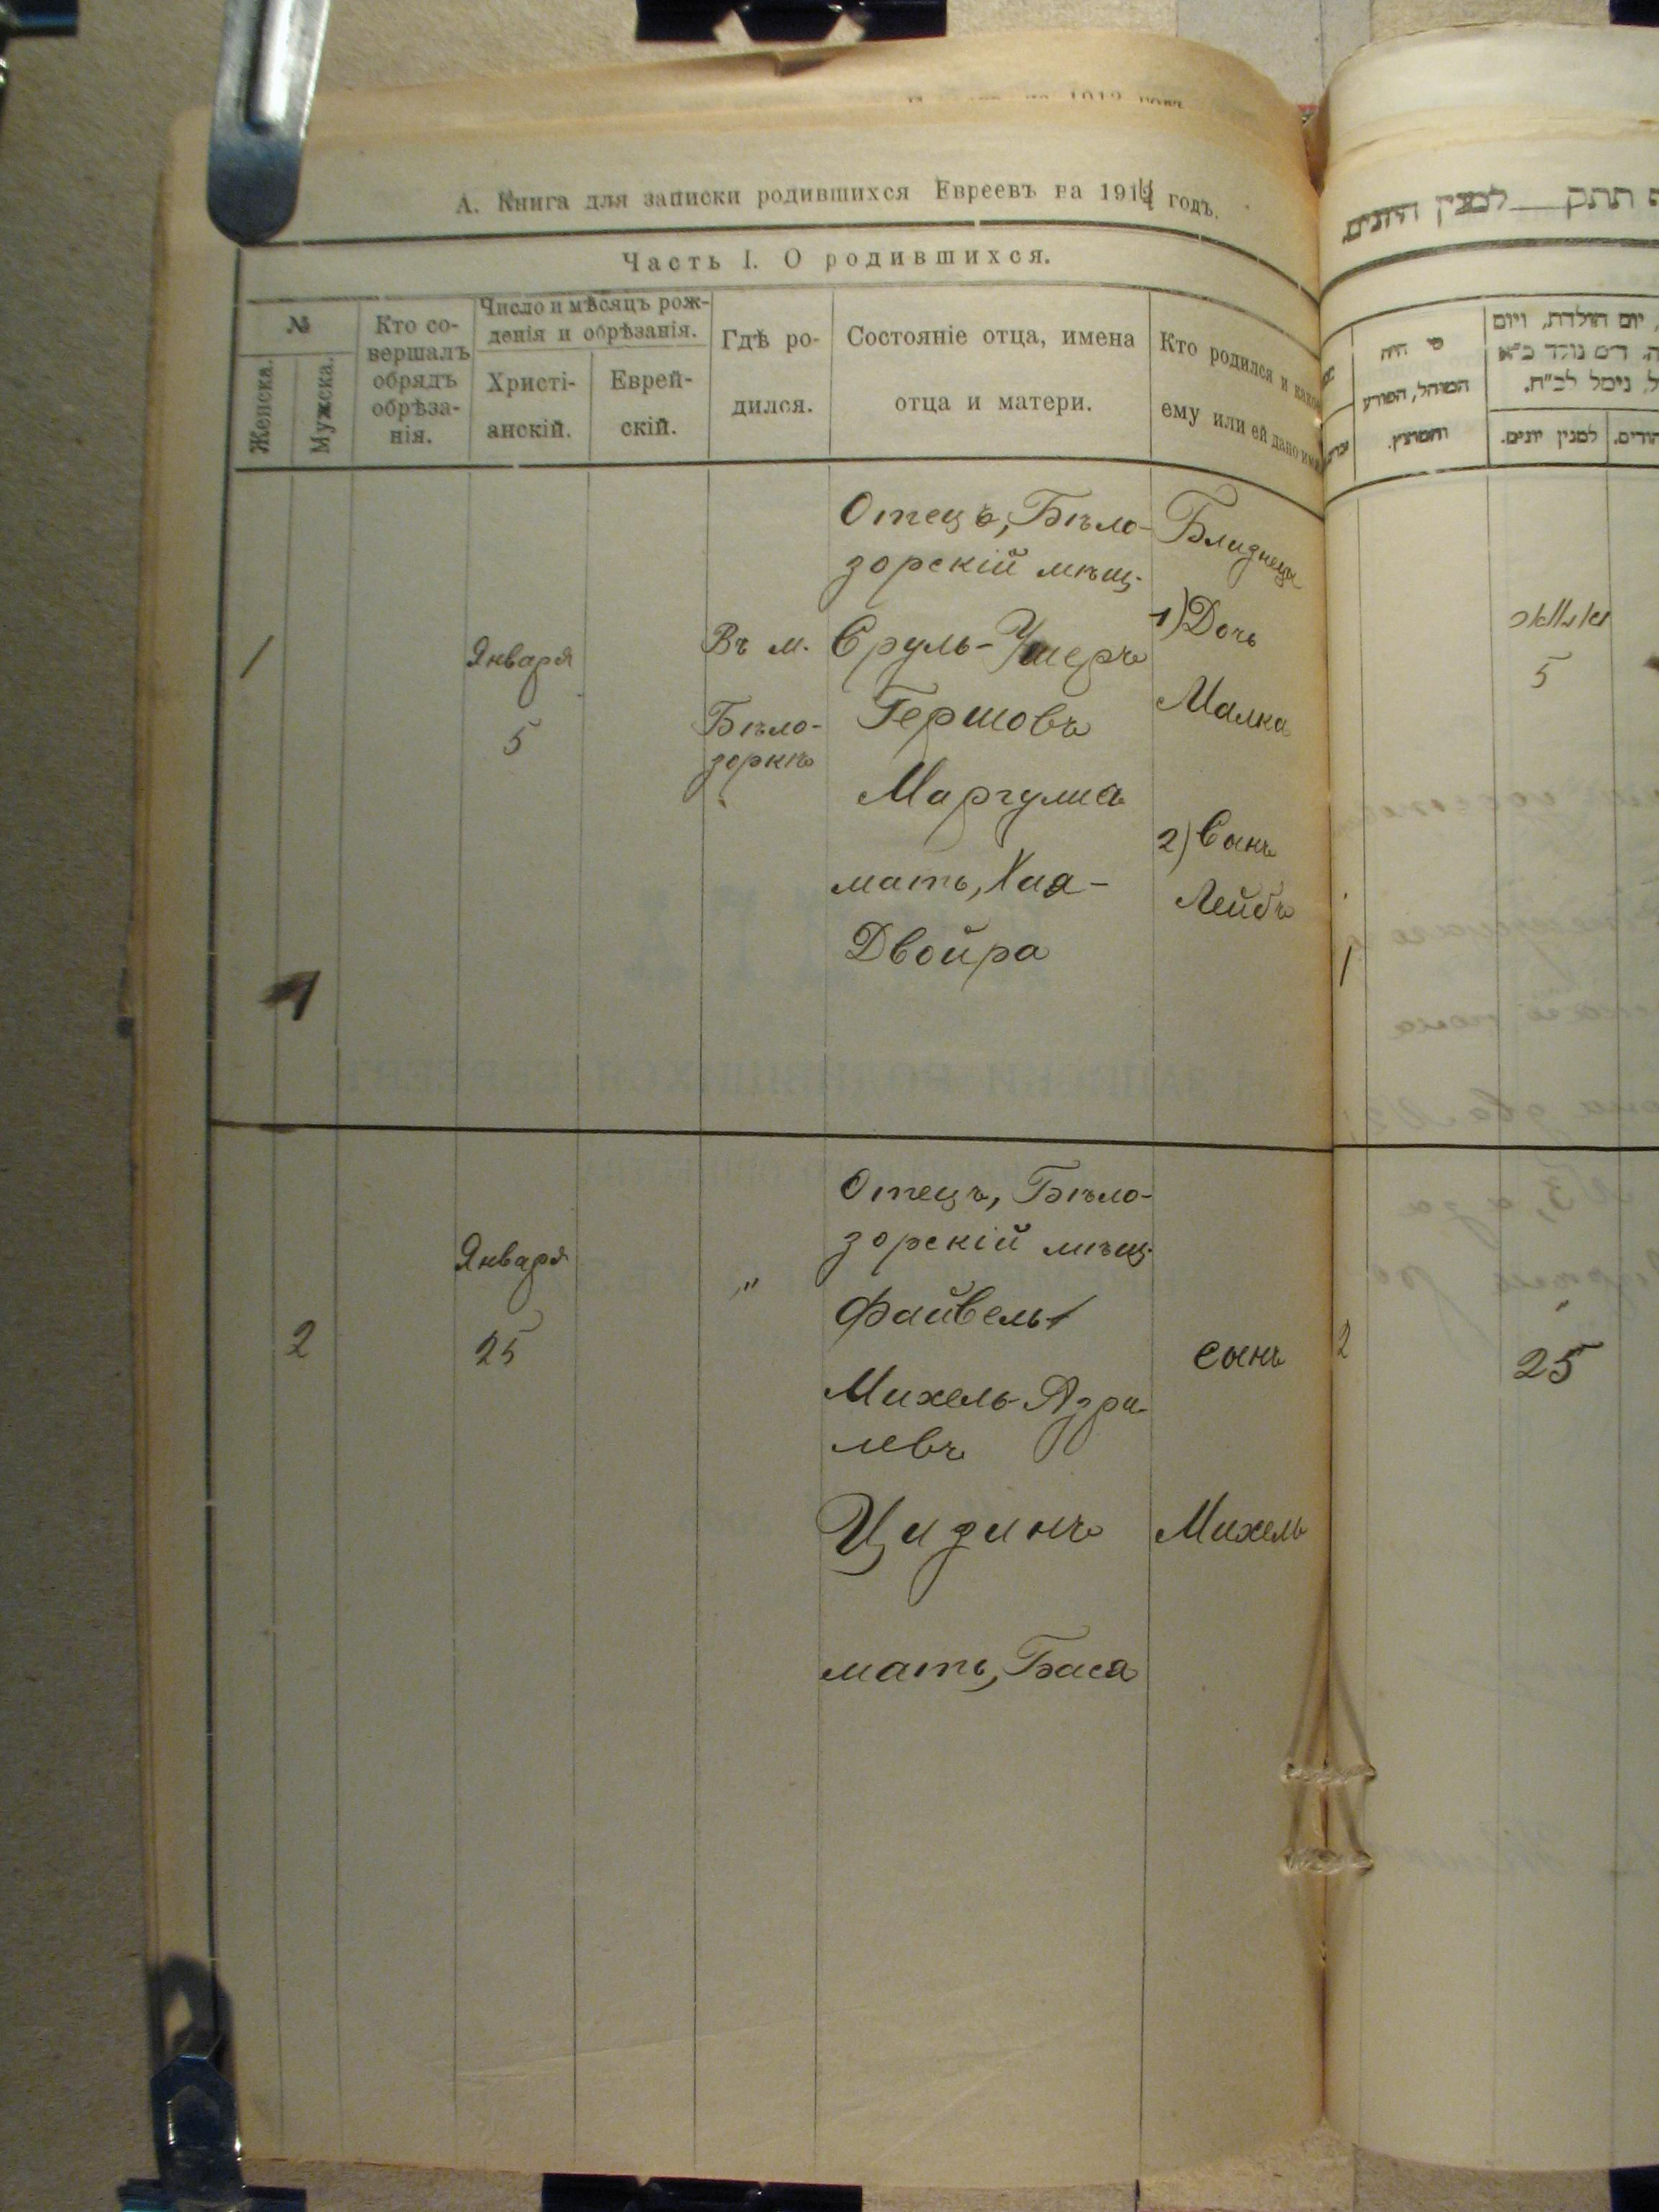 А. Книга для записки родившихся Евреевъ на 1914 годъ.
Часть I. О родившихся.
№
Женска.
Мужска.
Кто со-
вершалъ
обрядъ
обрѣза-
нія.
Число и мѣсяцъ рож-
денія и обрѣзанія.
Христі-
анскій.
Еврей-
скій.
Гдѣ ро-
дился.
Состояніе отца, имена
отца и матери.
Кто родился и какое
ему или ей дано имя
1
1
Января
5
Въ м.
Бѣло-
зоркѣ
Отецъ, Бѣло-
зорскій мѣщ.
Сруль-Ушеръ
Гершовъ
Маргулиа
мать, Хая-
Двойра
Близнецы
1) Дочь
Малка
2) Сынъ
Лейбъ
2
Января
25
"
Отецъ, Бѣло-
зорскій мѣщ.
Файвель
Михель-Азри-
левъ
Цидинъ
мать, Бася
сынъ
Михель
תתק למנין היונים
מי היה
המוהל, הפורע
והמוצץ.
יום הולדת, ויום
למנין יונים.
5
1
2
"
25